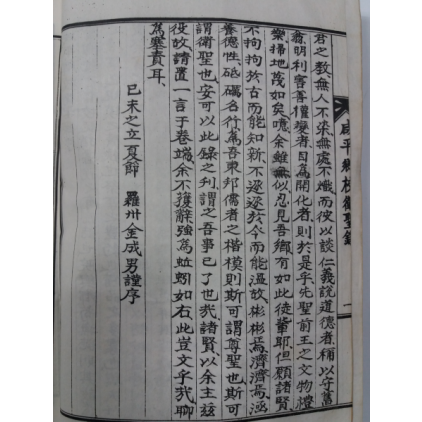 咸平鄕校衛聖錄 一
君之敎無人不染無處不熾而彼以談仁義說道德者稱以守舊
翁明利害善權變者目爲開化者則於是乎先聖前王之文物禮
樂掃地蔑如矣噫余雖無似忍見吾鄕有如此徒輩耶但願諸賢
不拘拘於古而能知新不逐逐於今而能溫故彬彬焉濟濟焉涵
養德性砥礪名行爲吾東邦儒者之楷模則斯可謂尊聖也斯可
謂衛聖也安可以此錄之刊謂之吾事已了也哉諸賢以余主玆
役故請置一言于卷端余不獲辭強爲蚊蚓如右此豈文乎哉聊
爲塞責耳
己未之立夏節 羅州金成男謹序